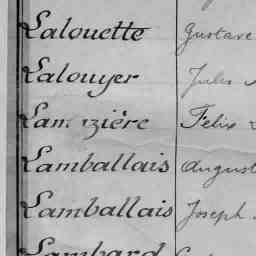 Lalouette Gustave
Lalouyer Jules
Felix
Lamballais August
Lamballais Joseph
Lambard